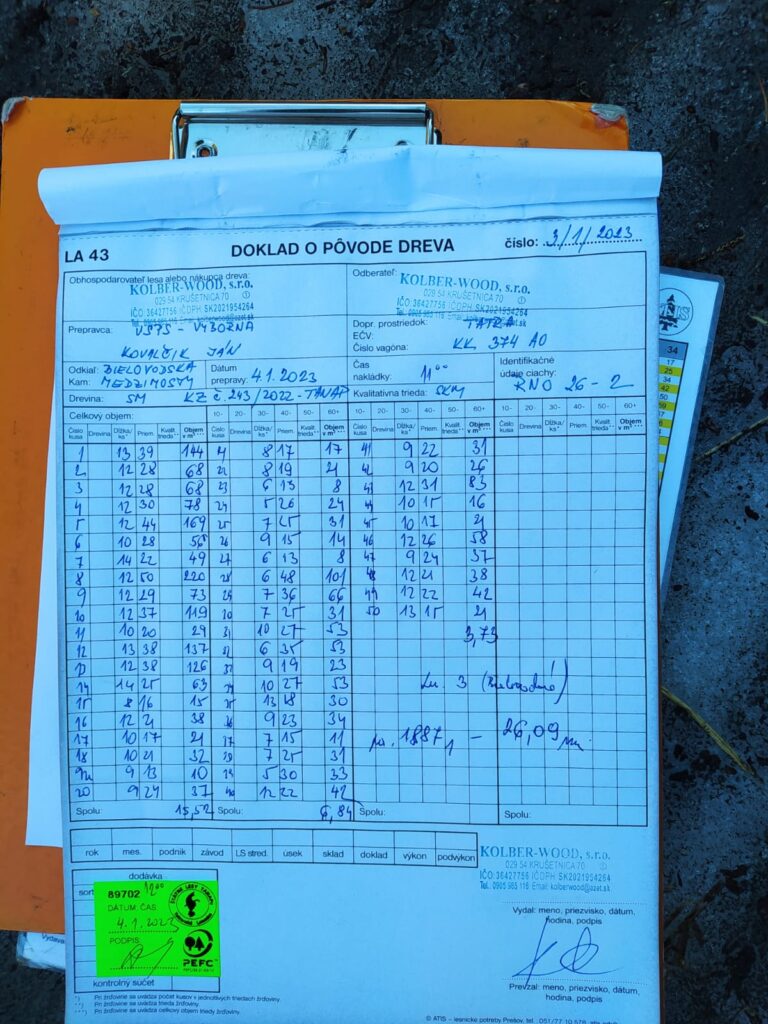 LA 43 DOKLAD O PÔVODE DREVA číslo: 3/1/2023
Obhospodarovateľ lesa alebo nákupca dreva:
KOLBER-WOOD, s.r.o.
029 54 KRUŠETNICA 70
IČO: 36427756 IČDPH: SK2021954264
Odberateľ:
KOLBER-WOOD, s.r.o.
029 54 KRUŠETNICA 70
IČO: 36427756 IČDPH: SK2021954264
Prepravca: VŠTS - VÝBORNÁ
KOVALČIK JÁN
Dopr. prostriedok: TATRA
EČV:
Číslo vagóna: KK 374 AO
Odkiaľ: BIELOVODSKÁ
Kam: MEDZIMOSTY
Dátum
prepravy: 4.1.2023
Čas
nakládky: 11⁰⁰
Identifikačné
údaje ciachy:
RNO 26-2
Drevina: SM KZ č. 243/2022-TANAP Kvalitatívna trieda: SKM
Celkový objem: 10- 20- 30- 40- 50- 60+ 10- 20- 30- 40- 50- 60+
Číslo kusa Drevina Dĺžka/ks* Priem. Kvalit. trieda** Objem v m³***
1 13 39 144
2 12 28 68
3 12 28 68
4 12 30 78
5 12 44 169
6 10 28 56
7 14 22 49
8 12 50 220
9 12 29 73
10 12 37 119
11 10 20 29
12 13 38 137
13 12 38 126
14 14 25 63
15 8 16 15
16 12 21 38
17 10 17 21
18 10 21 32
9 13 10
20 9 24 37
Spolu: 15,52
8 17 17
22 8 19 21
23 6 13 8
24 5 26 24
25 7 25 31
26 9 15 14
27 6 13 8
28 6 48 101
29 7 36 66
30 7 25 31
31 10 27 53
32 6 35 53
33 9 19 23
34 10 27 53
35 13 18 30
36 9 23 34
37 7 15 11
38 7 25 31
39 5 30 33
40 12 22 42
Spolu: 6,84
41 9 22 31
42 9 20 26
43 12 31 83
44 10 15 16
45 10 17 21
46 12 26 58
47 9 24 37
48 12 21 38
49 12 22 42
50 13 15 21
3,73
1887 - 26,09
Spolu:
Spolu:
rok mes. podnik závod LS stred. úsek sklad doklad výkon podvýkon
KOLBER-WOOD, s.r.o.
029 54 KRUŠETNICA 70
IČO: 36427756 IČDPH: SK2021954264
Tel. 0905 965 116 Email: kolberwood@azet.sk
dodávka
89702 12⁰⁰
DÁTUM: ČAS
4.1.2023
PODPIS
PEFC
kontrolný súčet
Vydal: meno, priezvisko, dátum,
hodina, podpis
Prevzal: meno, priezvisko, dátum,
hodina, podpis
*) Pri žrďovine sa uvádza počet kusov v jednotlivých triedach žrďoviny.
**) Pri žrďovine sa uvádza trieda žrďoviny.
***) Pri žrďovine sa uvádza celkový objem žrďoviny.
© ATIS – lesnícke potreby Prešov, tel. 051/77 10 578
34
17
25
34
42
50